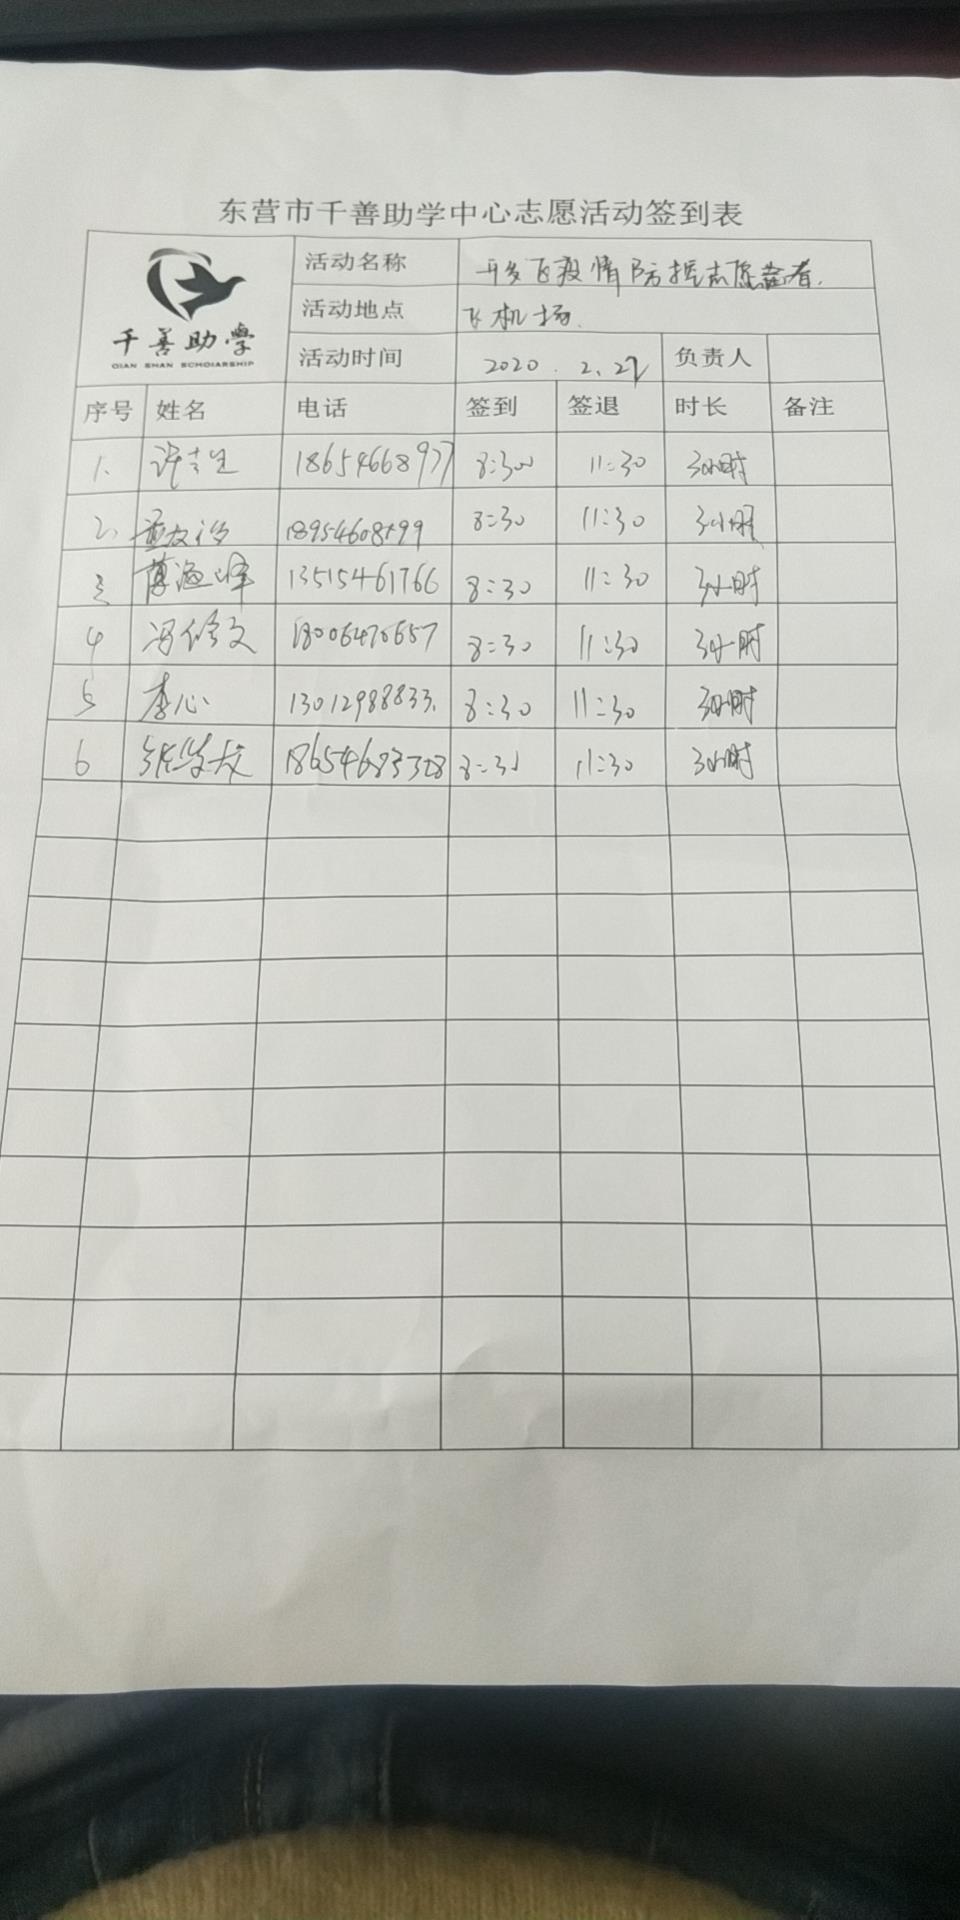 东营市千善助学中心志愿活动签到表
千善助學
QIAN SHAN SCHOLARSHIP
活动名称 疫情防控志愿者.
活动地点 飞机场.
活动时间 2020.2.27 负责人
序号 姓名 电话 签到 签退 时长 备注
1. 18654668977 8:30 11:30 3小时
2. 8:30 11:30 3小时
3 13515461766 8:30 11:30 3小时
4 冯修文 18006470657 8:30 11:30 3小时
5 李心 13012988833. 8:30 11:30 3小时
6 8:30 11:30 3小时